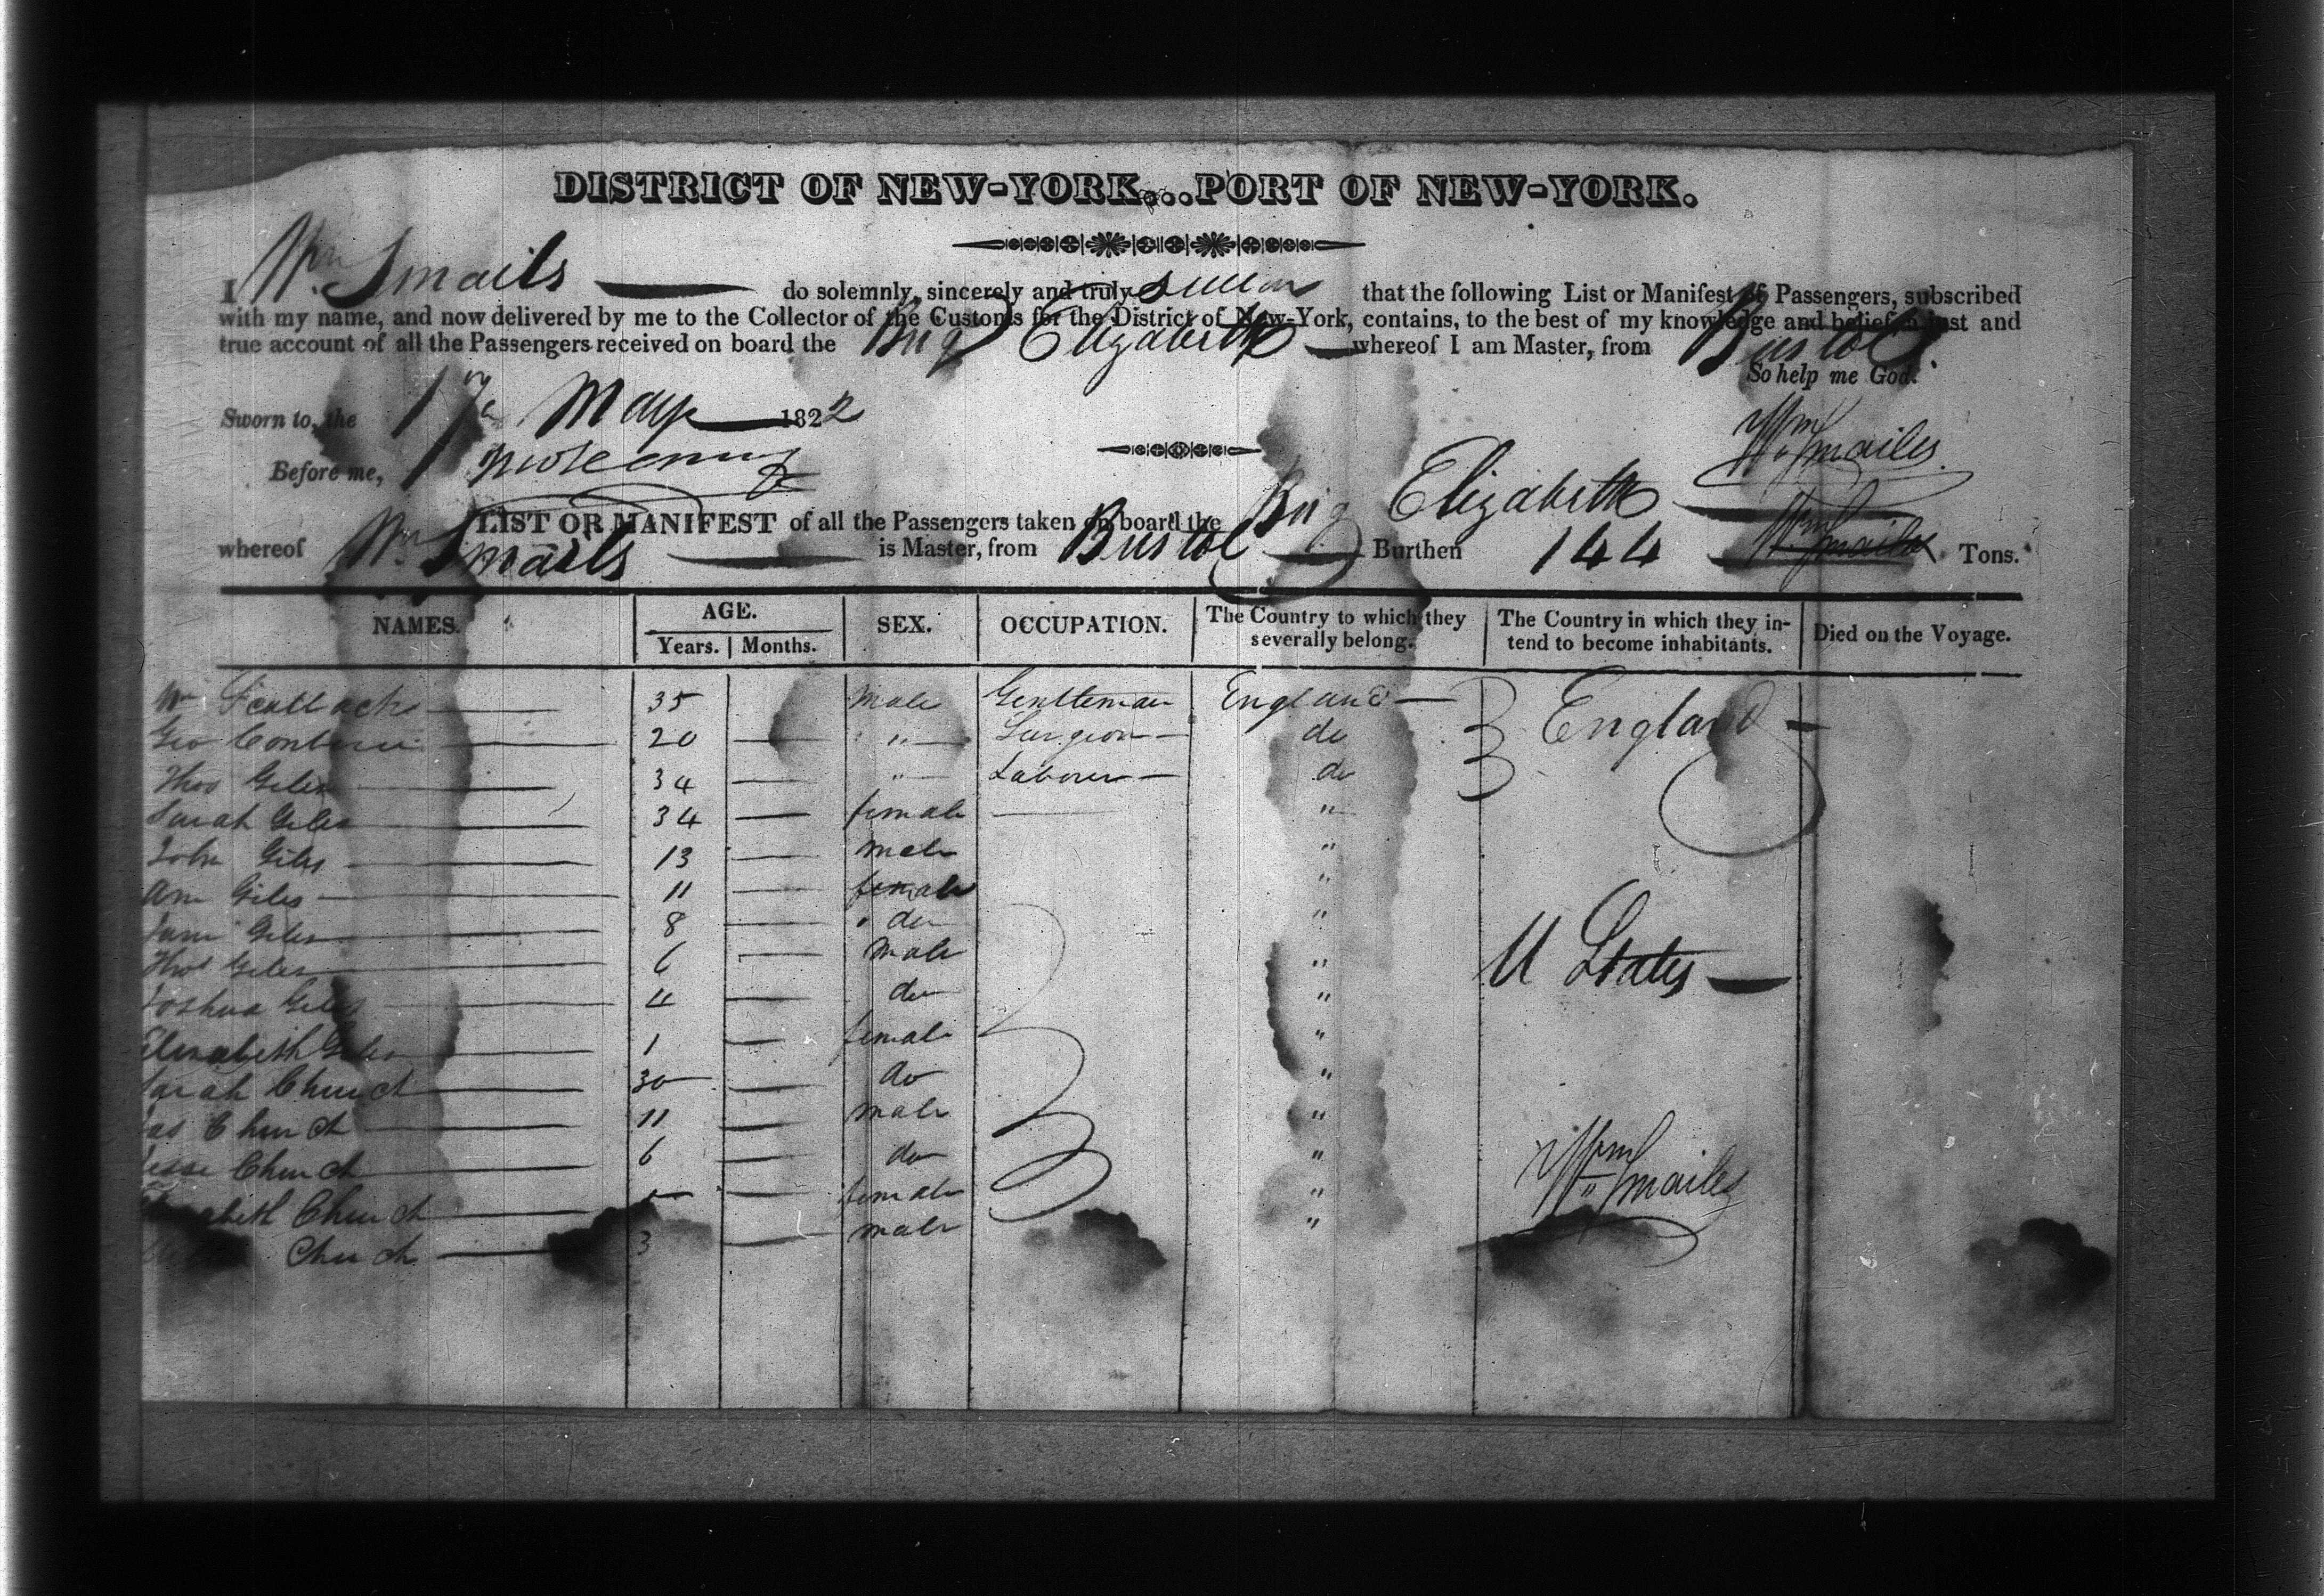 DISTRICT OF NEW-YORK...PORT OF NEW-YORK.
I Wm. Smails do solemnly, sincerely and truly swear that the following List or Manifest of Passengers, subscribed
with my name, and now delivered by me to the Collector of the Customs for the District of New-York, contains, to the best of my knowledge and belief a just and
true account of all the Passengers received on board the Brig Elizabeth whereof I am Master, from Bristol
So help me God.
Sworn to, the 17 May 1822
Wm Smailes
Before me,
LIST OR MANIFEST of all the Passengers taken on board the Brig Elizabeth
whereof Wm. Smails is Master, from Bristol Burthen 144 Wm Smailes Tons.
NAMES. AGE. Years. Months. SEX. OCCUPATION. The Country to which they severally belong. The Country in which they intend to become inhabitants. Died on the Voyage.
Wm 35 Male Gentleman England England
Geo 20 " Surgeon do
Thos Giles 34 " Labourer do
Sarah Giles 34 female "
John Giles 13 male "
Ann Giles 11 female "
Giles 8 do "
Thos Giles 6 Male " U States
Joshua Giles 4 do "
Elizabeth Giles 1 female "
Sarah Church 30 do "
Jas Church 11 male "
Jesse Church 6 do " Wm Smailes
Elizabeth Church 5 female "
Church 3 male "